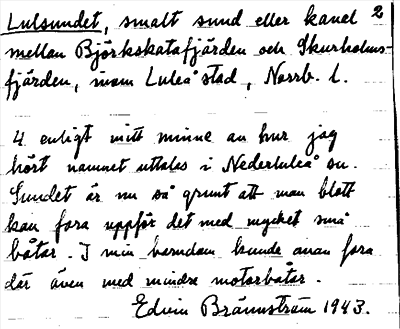 Lulsundet, smalt sund eller kanal 2
mellan Björkskatafjärden och Skurholms-
fjärden, inom Luleå stad, Norrb. l.
4 enligt mitt minne av hur jag
hört namnet uttalas i Nederluleå sn.
Sundet är nu så grunt att man blott
kan fara uppför det med mycket små
båtar. I min barndom kunde man fara
där även med mindre motorbåtar.
Edvin Brännström 1943.